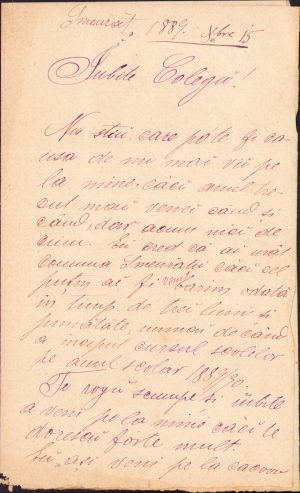 Smeurăt, 1889. Nbre 15
Iubite Colegŭ!
Nu știŭ care pote fi ca-
usa de nu mai vii pe
la mine; căci anul tre-
cut mai venei când și
când; dar acum nici de
cum. Eŭ cred că ai urât
comuna căci cel
puțin ai fi venit barim odată
în timp de trei luni și
jumătate, numai de când
a început cursul scólelor
pe anul școlar 1889/90.
Te rogŭ scumpe și iubite
a veni pe la mine căci te
doresc forte mult.
Eŭ, ași veni pe la